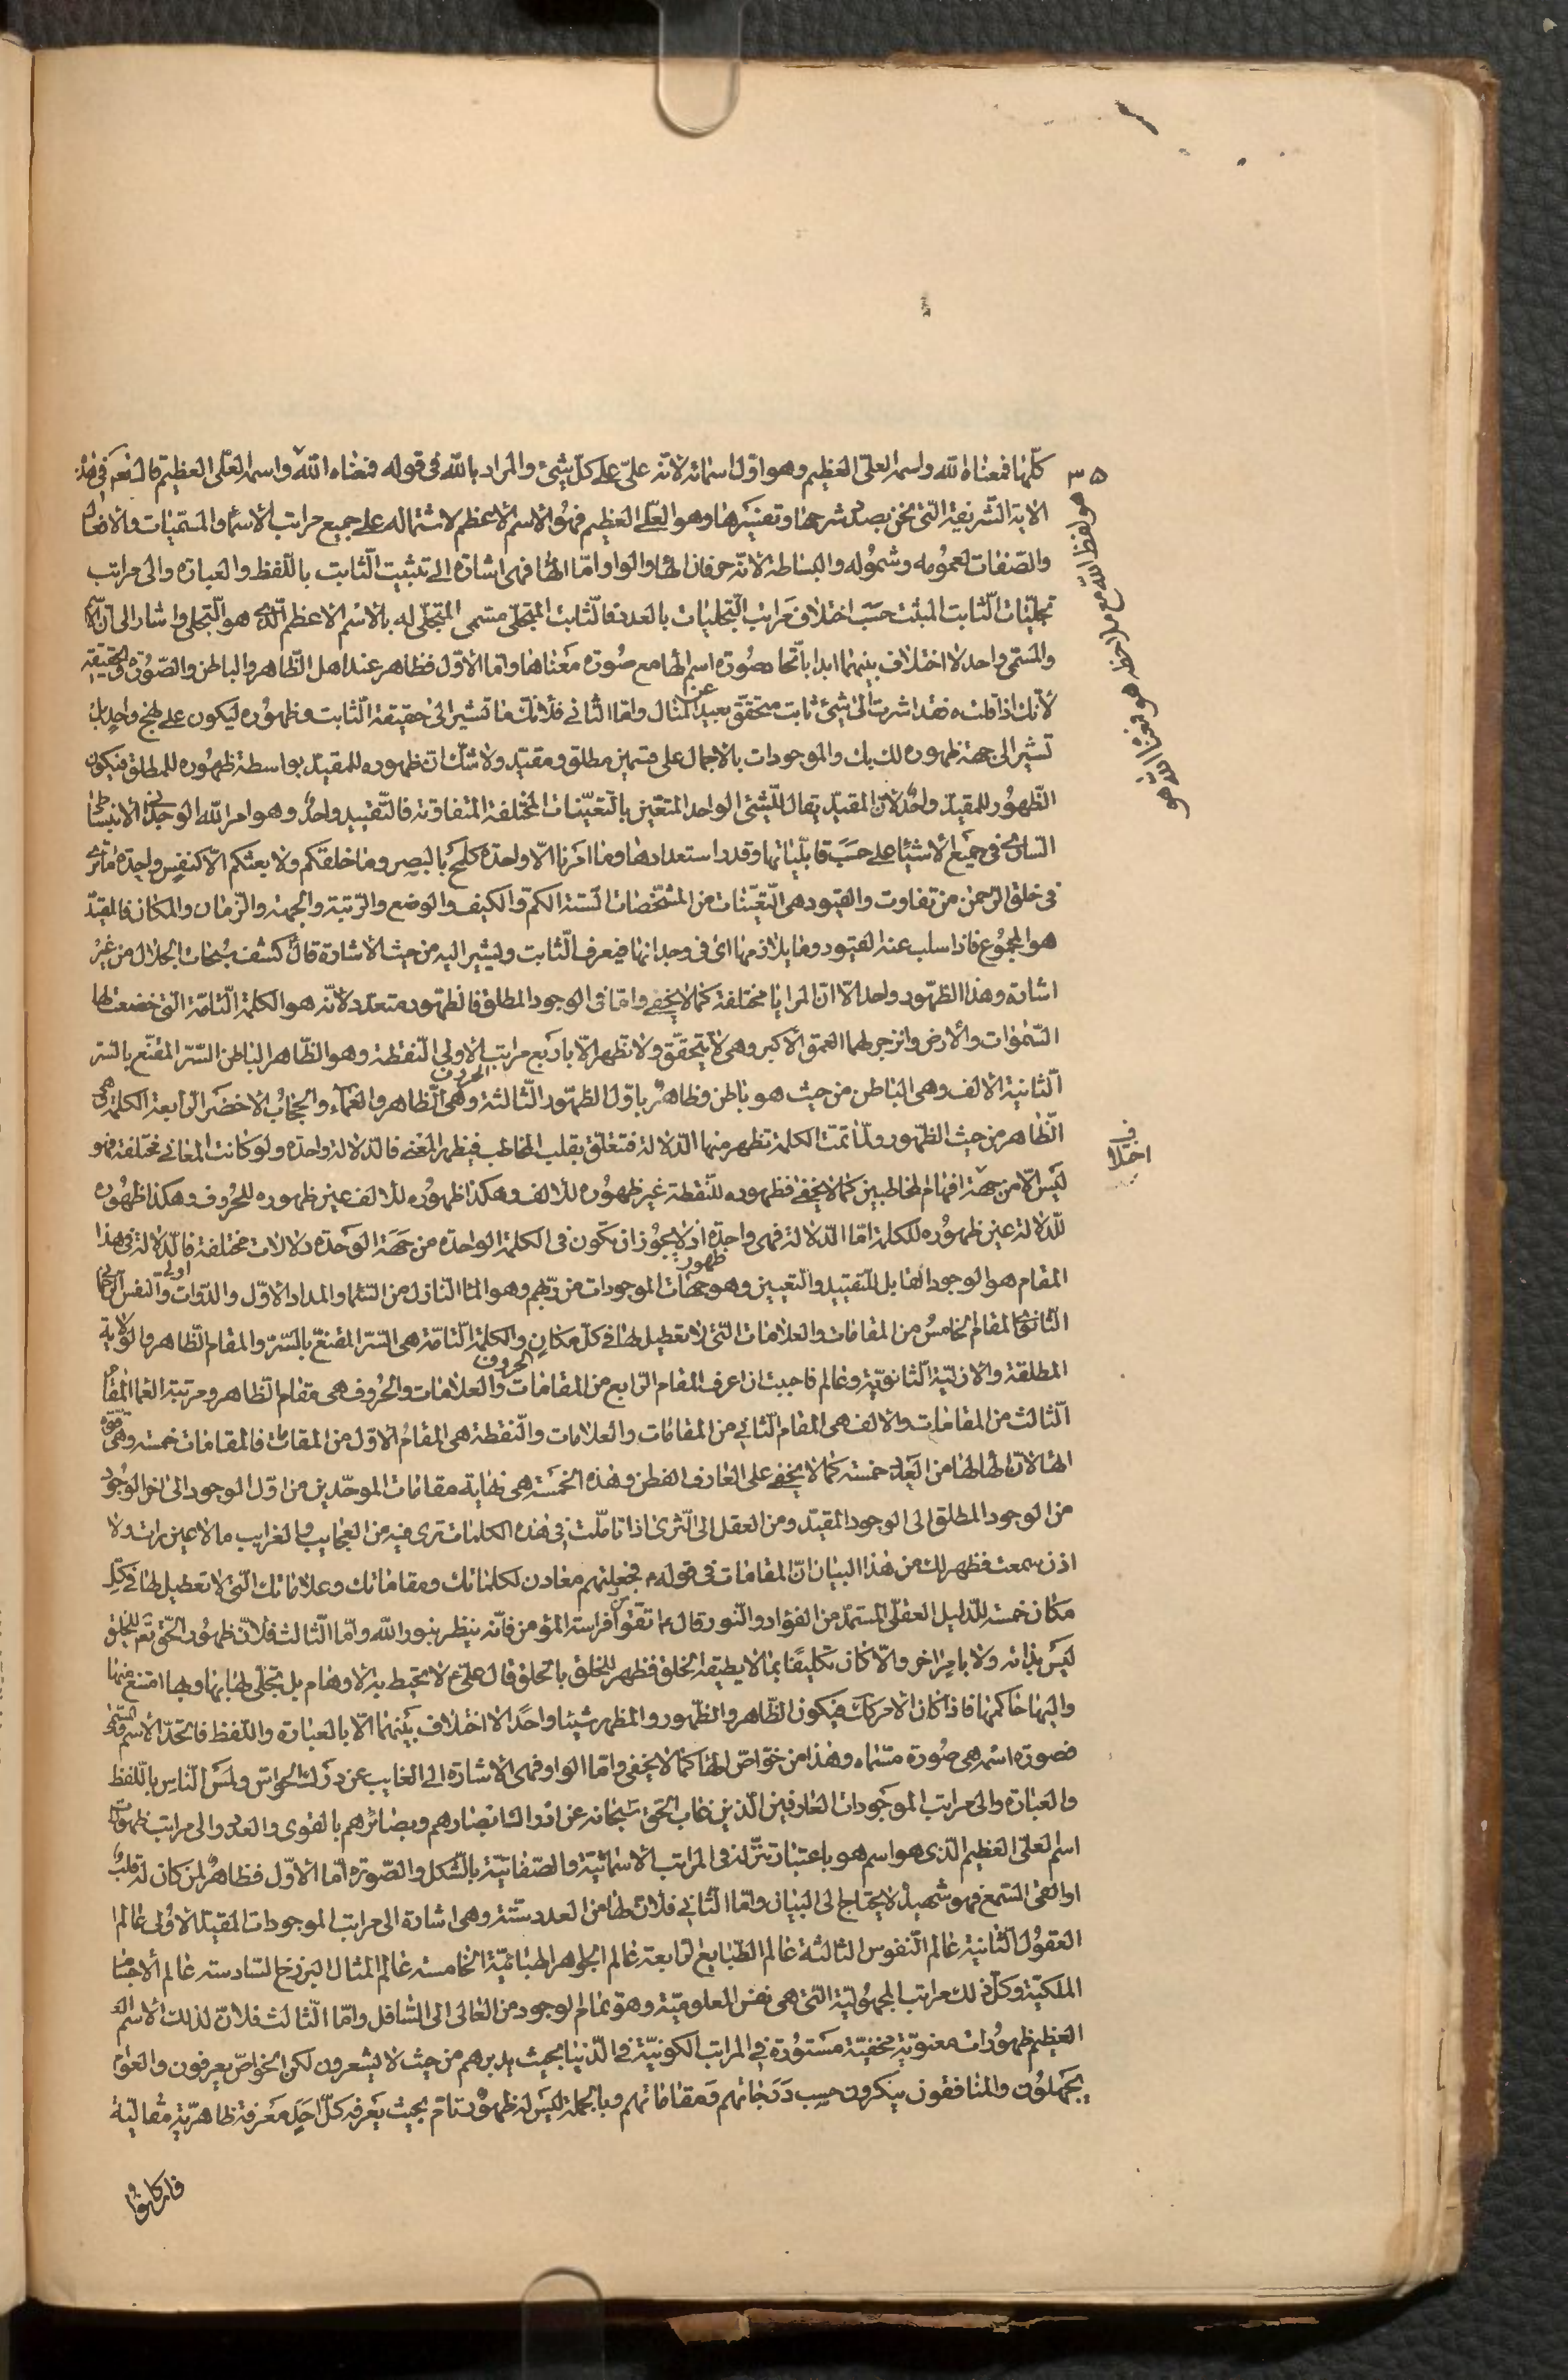 كلّها فمعناه الله واسمه العلىّ العظيم وهو اوّل اسمائه لانّه علىّ على كلّ شيئ والمراد بالله فى قوله فمعناه الله واسمه العلى العظيم قال نعم فى هذه
الاية الشّريفة الّتى نحن بصدد شرحها وتفسيرها وهو العلى العظيم فهو الاسم الاعظم لاشتماله على جميع مراتب الاسماء والمسمّيات والاضافات
والصّفات لعمومه وشموله والبساطة لانّه حرفان الهاء والواو امّا الهاء فهى اشارة الى تثبيت الثّابت باللّفظ والعبارة والى مراتب
تجليّات الثّابت المثبت حسب اختلاف مراتب التّجليات بالعدد فالثّابت المتجلّى مسمى المتجلّى له بالاسم الاعظم الّذى هو التّجلى واشار الى انّ الاسم
والمسمّى واحد لا اختلاف بينهما ابدا باتّحاد صورة اسم الهاء مع صورة معناها وامّا الاوّل فظاهر عند اهل الظّاهر والباطن والصّورة والحقيقة
لانّك اذا قلت ه فقد اشرت الى شيئ ثابت متحقّق بعيد عن المثال وامّا الثانى فلانّك ما تشير الى حقيقة الثّابت وظهوره ليكون على نهج واحد بل
تشير الى جهة ظهوره لك بك والموجودات بالاجمال على قسمين مطلق ومقيّد ولا شكّ انّ ظهوره للمقيّد بواسطة ظهوره للمطلق فيكون
الظّهور للمقيّد واحدٌ لانّ المقيّد يقال للشّيئ الواحد المتعيّن بالتّعيّنات المختلفة المتفاوتة فالتّقييد واحدٌ وهو امر الله الوحدانى الانبساطى
السّارى فى جميع الاشياء على حسب قابليّاتها وقدر استعدادها وما امرنا الّا واحدة كلمح بالبصر وما خلقكم ولا بعثكم الّا كنفس واحدة ما ترى
فى خلق الرّحمن من تفاوت والقيود هى التّعيّنات من المشخّصات السّتة الكمّ والكيف والوضع والرّتبة والجهة والزّمان والمكان فالمقيّد
هو المجموع فاذا سلب عنه القيود وما يلازمها اى فى وجدانها فيعرف الثّابت ويشير اليه من حيث الاشارة قال كشف سبحات الجلال من غير
اشارة وهذا الظّهور واحد الّا انّ المرايا مختلفة كما لا يخفى وامّا فى الوجود المطلق فالظهور متعدد لانّه هو الكلمة التّامّة الّتى خضعت لها
السّموات والارض وانزجر لها العمق الاكبر وهى لا يتحقّق ولا تظهر الّا باربع مراتب الاولى النّقطة وهو الظّاهر الباطن السّرّ المقنّع بالسّر
الثّانية الالف وهى الباطن من حيث هو باطن وظاهرٌ باوّل الظّهور الثّالثة الحروف وهى الظّاهر والعماء والحجاب الاخضر الرّابعة الكلمة وهى
الظّاهر من حيث الظّهور ولمّا تمّت الكلمة تظهر منها الدّلالة فتتعلّق بقلب المخاطب فيظهر المعنى فالدّلالة واحدة ولو كانت المعانى مختلفة فهو
ليس الّا من جهة افهام المخاطبين كما لا يخفى فظهوره للنّقطة غير ظهوره للالف وهكذا ظهوره للالف غير ظهوره للحروف وهكذا ظهوره
للّدلالة غير ظهوره للكلمة امّا الدّلالة فهى واحدة اذ لا يجوز ان تكون فى الكلمة الواحدة من جهة الوحدة دلالات مختلفة فالدّلالة فى هذا
المقام هو الوجود القابل للتّقييد والتعيين وهو جهات ظهور الموجودات من ربّهم وهو الماء النّازل من السّماء والمداد الاوّل والدّوات اولى والنّفس الرّحمانى
الثّانوى المقام الخامس من المقامات والعلامات الّتى لا تعطيل لها فى كلّ مكانٍ والكلمة التّامّة هى السّرّ المقنّع بالسّرّ والمقام الظّاهر والولاية
المطلقة والازليّة الثّانويّة وعالم فاحببت ان اعرف المقام الرّابع من المقامات والعلامات والحروف هى مقام الظّاهر ومرتبة العماء المقام
الثّالث من المقامات والالف هى المقام الثّانى من المقامات والعلامات والنّقطة هى المقام الاوّل من المقامات فالمقامات خمسة وهى
الهاء لانّ الهاء لها من العدد خمسة كما لا يخفى على العارف الفطن وهذه الخمسة هى نهاية مقامات الموحّدين من اوّل الوجود الى اخر الوجود
من الوجود المطلق الى الوجود المقيّد ومن العقل الى الثّرى اذا تامّلت فى هذه الكلمات ترى فيه من العجايب والغرايب ما لا عين رات ولا
اذن سمعت فظهر لك من هذا البيان انّ المقامات فى قوله م فجعلتهم معادن لكلماتك ومقاماتك وعلاماتك الّتى لا تعطيل لها فى كلّ
مكان خمسة للدّليل العقلىّ المستمدّ من الفؤاد والنّور قال ع اتّقوا من فراسة المؤمن فانّه ينظر بنور الله وامّا الثّالث فلانّ ظهور الحقّ تع للخلق
ليس بذاته ولا بامر اخر والّا كان تكليفًا بما لا يطيقه الخلق فظهر للخلق بالخلق قال علىّ ع لا تحيط به الاوهام بل تجلّى لها بها وبها امتنع منها
واليها حاكمها فاذا كان الامر كك فيكون الظّاهر والظّهور والمظهر شيئا واحدًا لا اختلاف بينهما الّا بالعبارة واللّفظ فاتّحد الاسم والمسمّى
فصورة اسمه هى صورة مسمّاه وهذا من خواصّ الهاء كما لا يخفى وامّا الواو فهى الاشارة الى الغايب عن درك الحواس ولمس الناس باللّفظ
والعبارة والى مراتب الموجودات العارفين الّذين غاب الحقّ سبحانه عن ابصارهم وبصائرهم بالقوى والعدد والى مراتب ظهورات
اسم العلىّ العظيم الّذى هو اسم هو باعتبار تنزّله فى المراتب الاسمائيّة والصّفاتيّة بالشّكل والصّورة امّا الاوّل فظاهرٌ لمن كان له قلبٌ
او القى السّمع فهو شهيدٌ لا يحتاج الى البيان وامّا الثّانى فلانّ لها من العدد ستّة وهى اشارة الى مراتب الموجودات المقيّدة الاولى عالم
العقول الثّانية عالم النّفوس الثالثة عالم الطّبايع الرّابعة عالم الجواهر الهبائيّة الخامسة عالم المثال البرزخ السّادسة عالم الاجسام
الملكيّة وكلّ ذلك مراتب المجهوليّة التى هى نفس المعلوميّة وهو تمام الوجود من العالى الى السّافل وامّا الثّالث فلانّ لذلك الاسم
العظيم ظهورات معنويّة مخفيّة مستورة فى المراتب الكونيّة فى الدّنيا بحيث يدبرهم من حيث لا يشعرون لكن الخواصّ يعرفون والعوام
يجهلون والمنافقون ينكرون حسب درجاتهم ومقاماتهم وبالجملة ليس له ظهورٌ تام بحيث يعرفه كلّ احد معرفة ظاهريّة مقاليّة
٣٥
هو لفظ الله مع ملاحظه
اختلاف